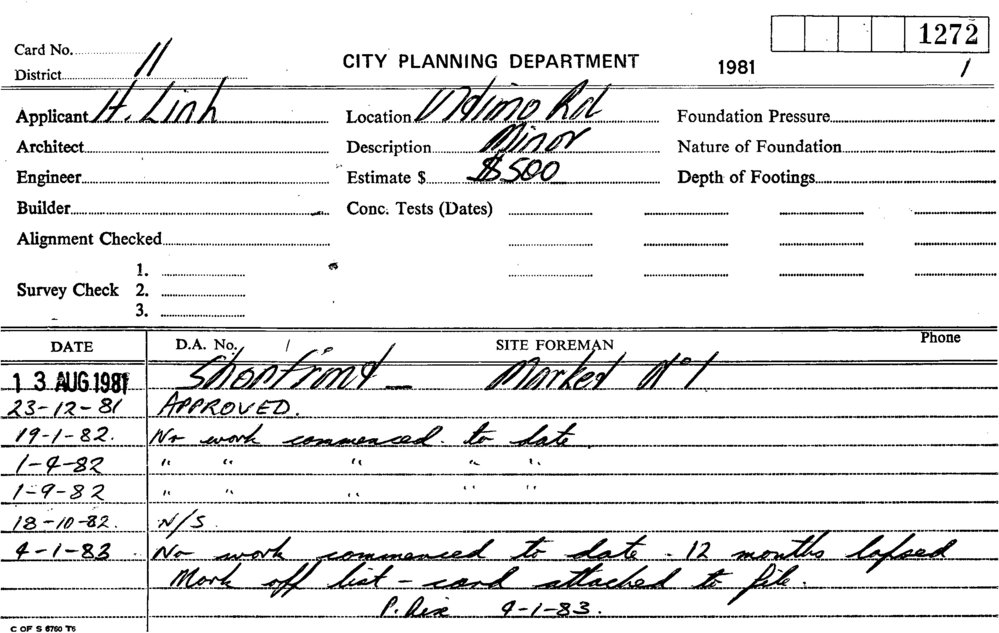 1272
Card No. 11
District
CITY PLANNING DEPARTMENT
1981 1
Applicant H. Linh Location Udimo Rd Foundation Pressure
Architect Description Minor Nature of Foundation
Engineer Estimate $ $500 Depth of Footings
Builder Conc. Tests (Dates)
Alignment Checked
1.
Survey Check 2.
3.
DATE D.A. No. SITE FOREMAN Phone
13 AUG 1981 Shopfront - Market No 1
23-12-81 APPROVED.
19-1-82. No work commenced to date
1-4-82 " " " " "
1-9-82 " " " " "
18-10-82. N/S.
4-1-83 No work commenced to date - 12 months lapsed
Mark off list - card attached to file.
4-1-83.
C OF S 6760 T6